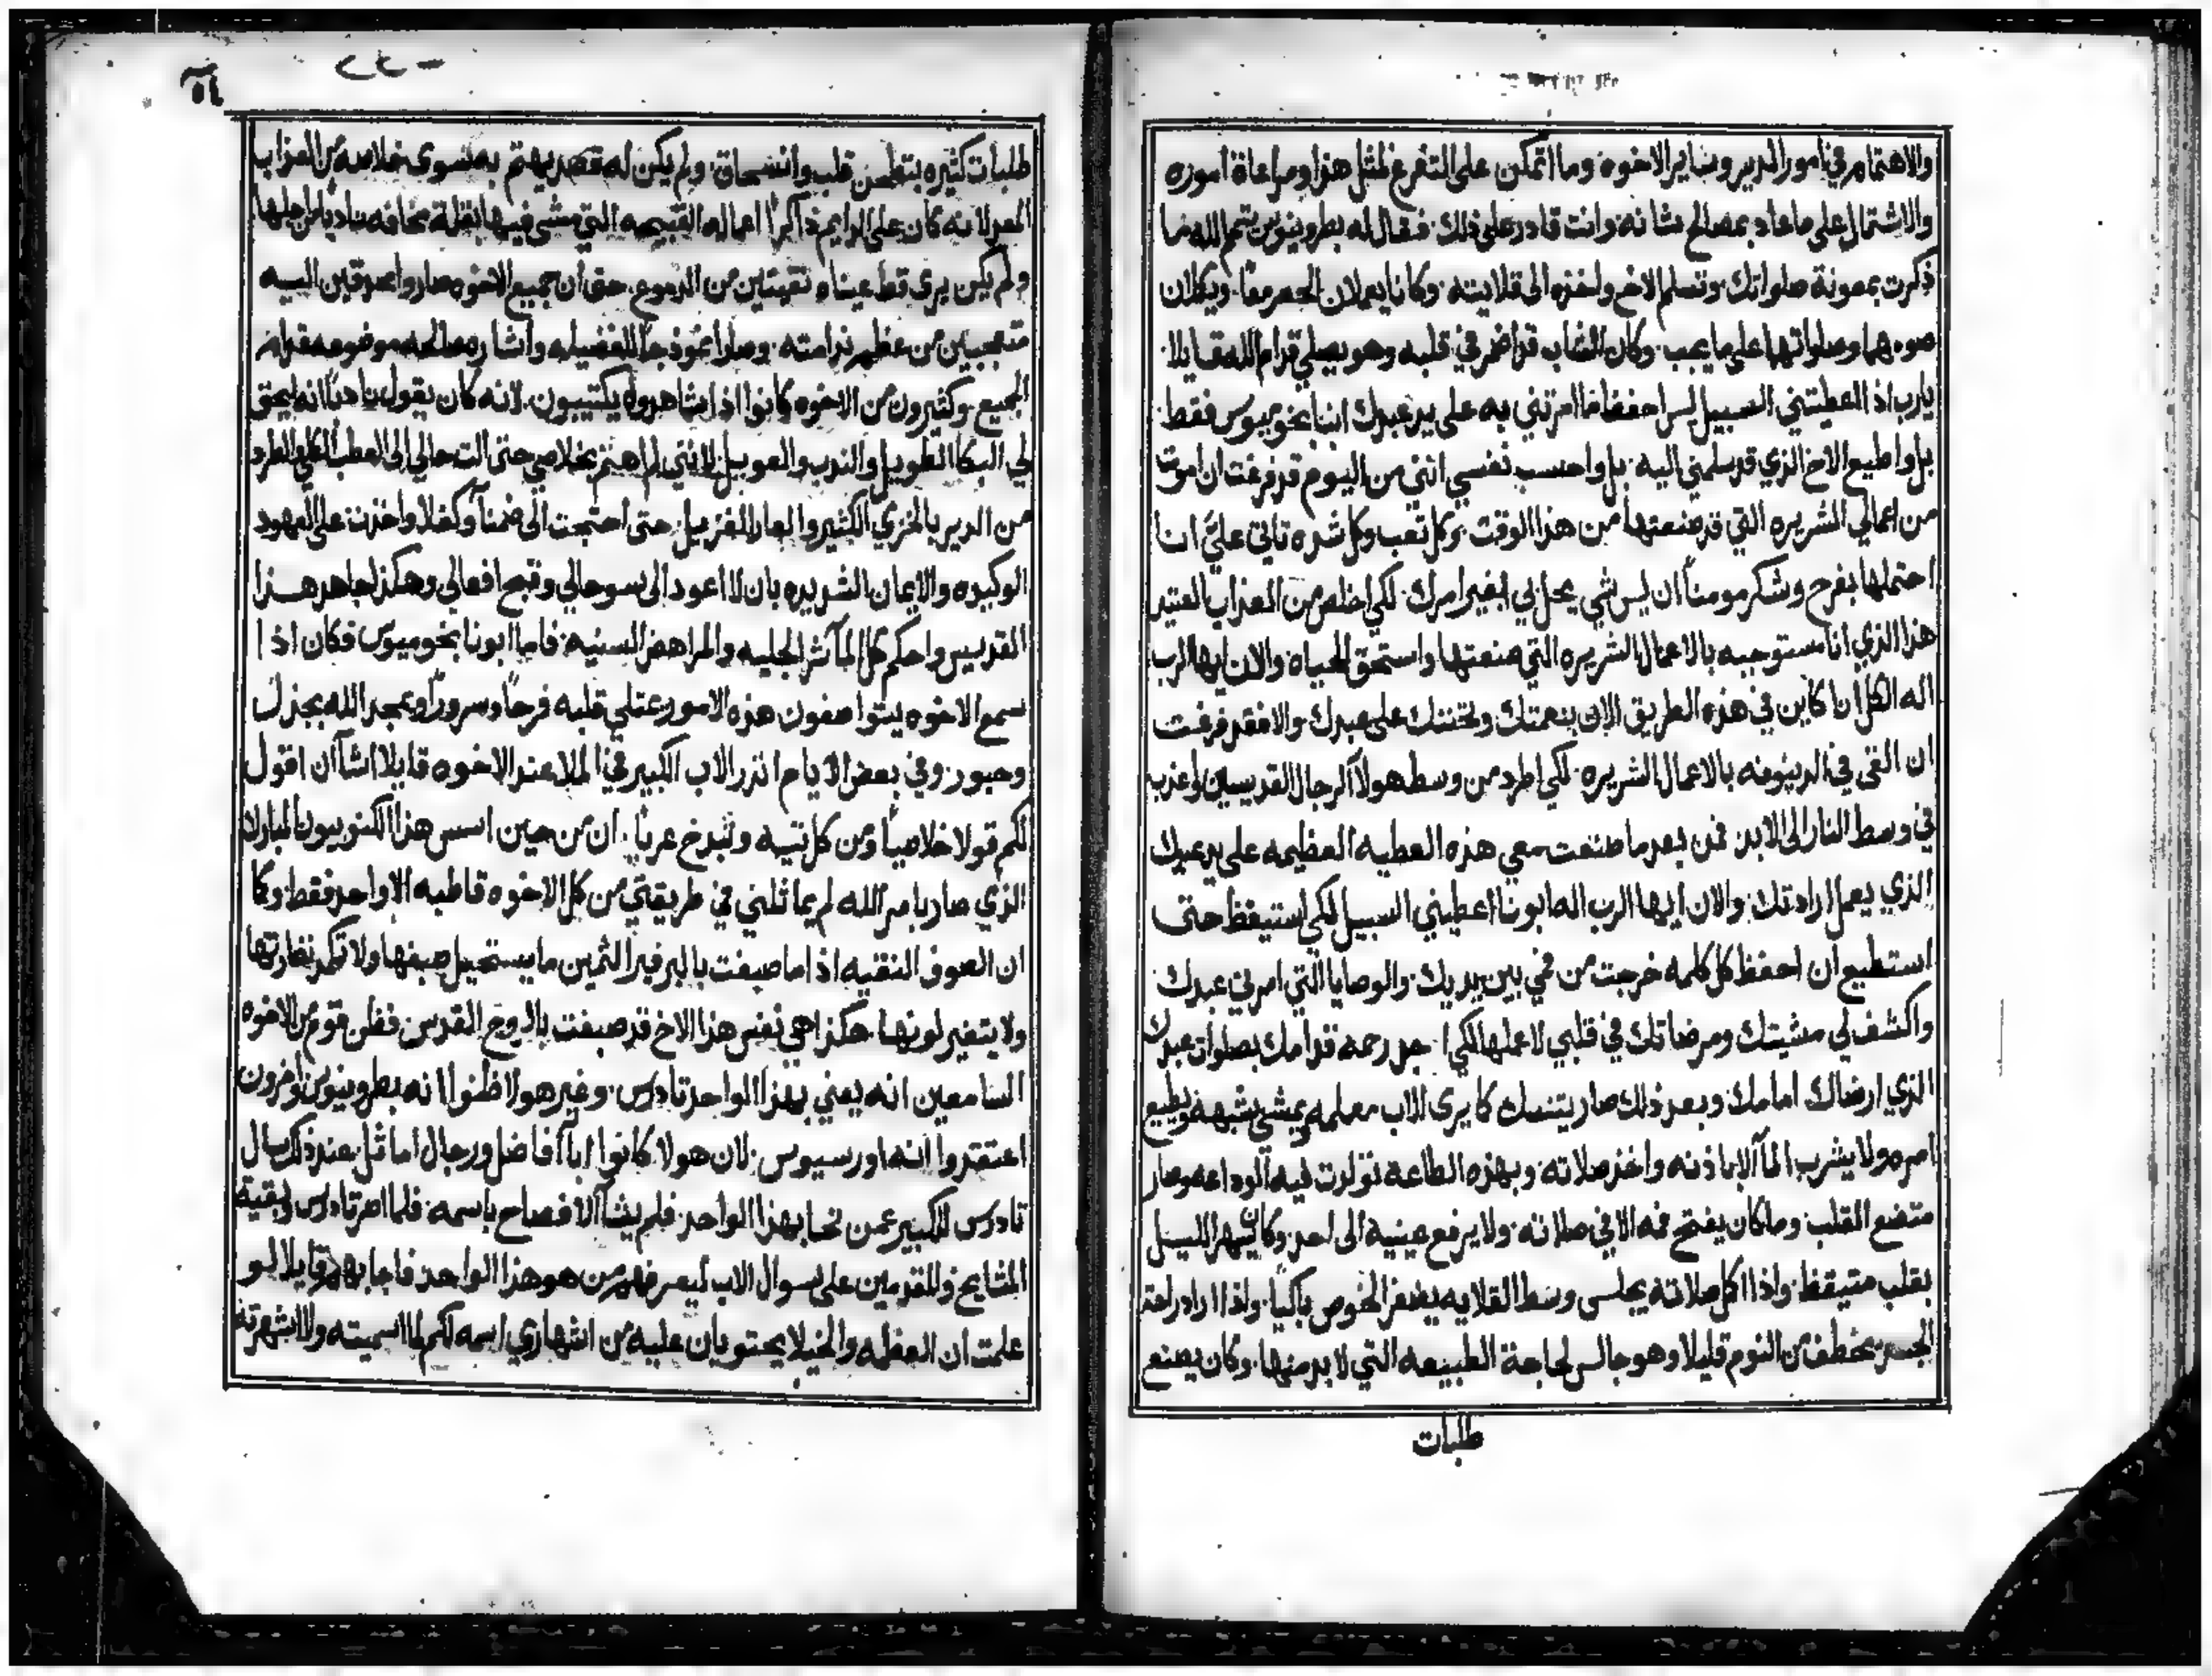 والاهتمام في امور الدير وساير الاخوه وما اتمكن على التفرغ لمثل هذا ومراعاة اموره
والاشتمال على ما عاد بمصالح شانه وانت قادر على ذلك فقال له بطرونيوس يتمم الله ما
ذكرت بمعونة صلواتك وتسلم الاخ واخذه الى قلايته وكانا يعملان الجميع معًا ويكملان
صومهما وصلواتهما على ما يجب وكان الشاب قد اضمر في قلبه وهو يصلي قدام الله قايلا
يارب اذ اعطيتني السبيل ليس احفظ ما امرتني به على يد عبدك انبا بخوميوس فقط
بل واطيع الاخ الذي قد سلمني اليه بل واحسب نفسي انني من اليوم قد فرغت ان اموت
من اعمالي الشريره التي قد صنعتها من هذا الوقت وكل تعب وكل شده تاتي عليّ انا
احتملها بفرح وشكر مومنًا ان ليس شي يحل بي بغير امرك لكي اخلص من العذاب العتيد
هذا الذي انا مستوجبه بالاعمال الشريره التي صنعتها واستحق الحياه والان ايها الرب
اله الكل انا كاين في هذه الطريق الان بنعمتك وتحننك على عبدك والا فقد فرغت
ان القى في الدينونه بالاعمال الشريره لكي اطرد من وسط هولا الرجال القديسين واعذب
في وسط النار الى الابد فمن بعد ما صنعت معي هذه العطيه العظيمه على يد عبدك
الذي يعمل ارادتك والان ايها الرب اله ابونا اعطيني السبيل لكي استيقظ حتى
استطيع ان احفظ كل كلمه خرجت من فمي بين يديك والوصايا التي امرني عبدك
واكشف لي مشيتك ومرضاتك في قلبي لاعملها لكي اجد رحمه قدامك بصلوات عبدك
الذي ارضاك امامك وبعد ذلك صار يتنسك كما يرى الاب معلمه ويمشي بشبهه ويطيع
امره ولا يشرب الما الا باذنه واخذ صلاته وبهذه الطاعه تولدت فيه الوداعه وصار
متضع القلب وما كان يفتح فمه الا في صلاته ولا يرفع عينيه الى احد وكان يسهر الليل
بقلب متيقظ واذا اكمل صلاته يجلس وسط القلايه يضفر الخوص باكيًا واذا اراد راحة
الجسد يخطف من النوم قليلا وهو جالس لحاجة الطبيعه التي لا بد منها وكان يصنع
طلبات
طلبات كثيره بتطامن قلب وانسحاق ولم يكن له قصد يهتم به سوى خلاصه من العذاب
لانه كان على الدايم ذاكرًا اعماله القبيحه التي مشى فيها بقلة مخافه نادبا من اجلها
ولم يكن يرى قط عيناه نقيتين من الدموع حتى ان جميع الاخوه صاروا محدقين اليه
متعجبين من عظم ندامته وصار انموذجا للفضيله واشاره صالحه موضوعه قدام
الجميع وكثيرون من الاخوه كانوا اذا شاهدوه يكتيبون لانه كان يقول نادبًا انه يحق
لي البكا الطويل والندب والعويل لانني لم اهتم بخلاصي حتى الت حالي الى العطب الكلي والطرد
من الدير بالخزي الكثير والعار الجزيل حتى احتجت الى ضمنا وكفلا واخذت على العهود
الوكيده والايمان الشديده بان لا اعود الى سو حالي وقبح افعالي وهكذا جاهد هذا
القديس واحكم كل الماثر الجليه والمراهض السنيه فاما ابونا بخوميوس فكان اذا
سمع الاخوه يتواصفون هذه الامور يمتلي قلبه فرحًا وسرورًا ويمجد الله بجذل
وحبور وفي بعض الايام انذر الاب الكبير في الملا عند الاخوه قايلا اشا ان اقول
لكم قولا خلاصيًا ومن كل تيه وتبدخ عريًا ان من حين اسس هذا الكنوبيون المبارك
الذي صار بامر الله لم يماثلني في طريقتي من كل الاخوه قاطبه الا واحد فقط وكما
ان الصوف النقيه اذا ما صبغت بالبرفير الثمين ما يستحيل صبغها ولا تكمد نضارتها
ولا يتغير لونها هكذا هي نفس هذا الاخ قد صبغت بالروح القدس فظن قوم من الاخوه
السامعين انه يعني بهذا الواحد تادرس وغير هولا ظنوا انه بطرونيوس واخرون
اعتقدوا انه اورسيوس لان هولا كانوا ابا افاضل ورجال اماثل عند ذلك سال
تادرس الكبير عمن نحا بهذا الواحد فلم يشا الافصاح باسمه فلما اصر تادرس وبقية
المشايخ والمقدمين على سوال الاب ليعرفهم من هو هذا الواحد فاجابهم قايلا لو
علمت ان العظمه والخيلا يحتويان عليه من اشهاري اسمه لكم لما اسميته ولا اشهرته